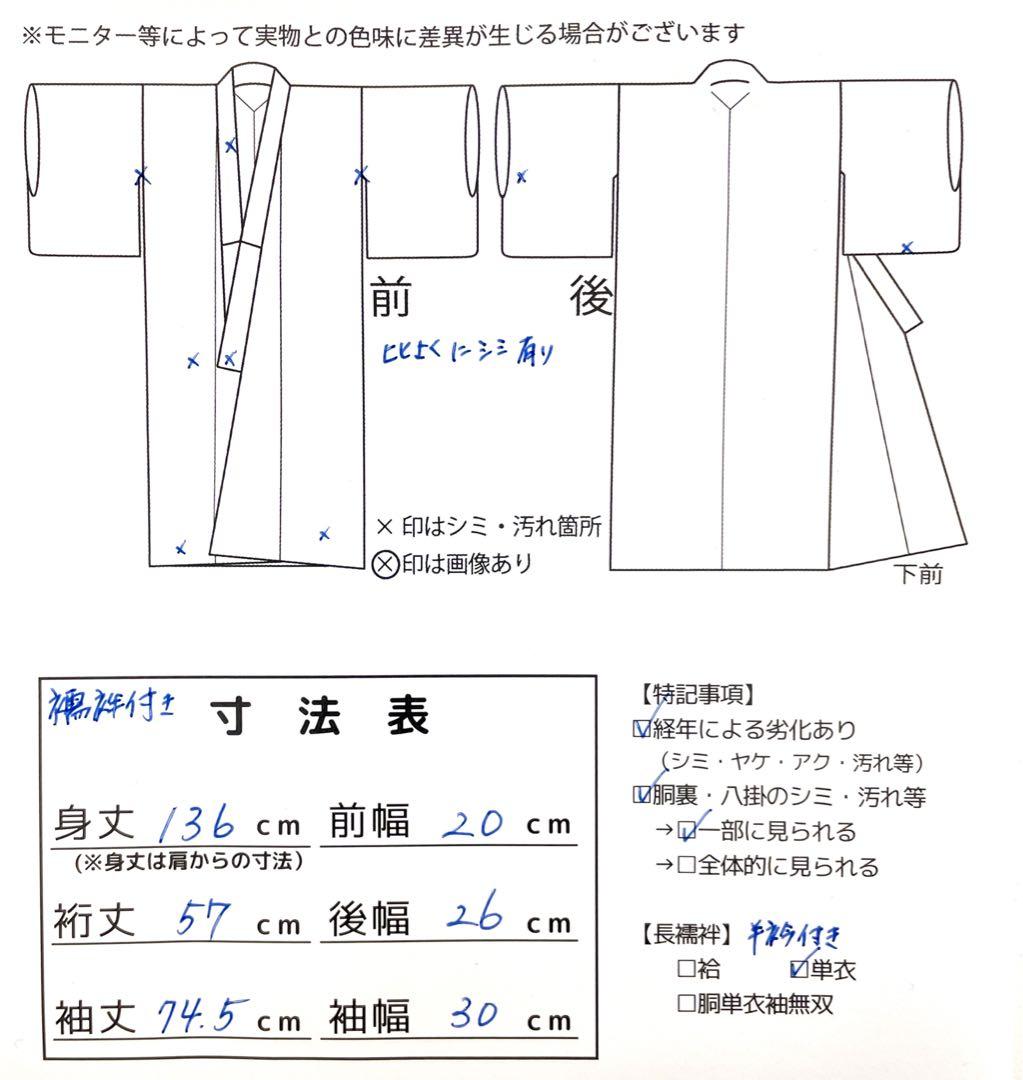 ※モニター等によって実物との色味に差異が生じる場合がございます
前
後
ヒヒよくにシミ有り
×印はシミ・汚れ箇所
ⓧ印は画像あり
下前
襦袢付き 寸法表
身丈 136 cm 前幅 20 cm
(※身丈は肩からの寸法)
裄丈 57 cm 後幅 26 cm
袖丈 74.5 cm 袖幅 30 cm
【特記事項】
☑経年による劣化あり
(シミ・ヤケ・アク・汚れ等)
☑胴裏・八掛のシミ・汚れ等
→☑一部に見られる
→□全体的に見られる
【長襦袢】 半衿付き
□袷 ☑単衣
□胴単衣袖無双